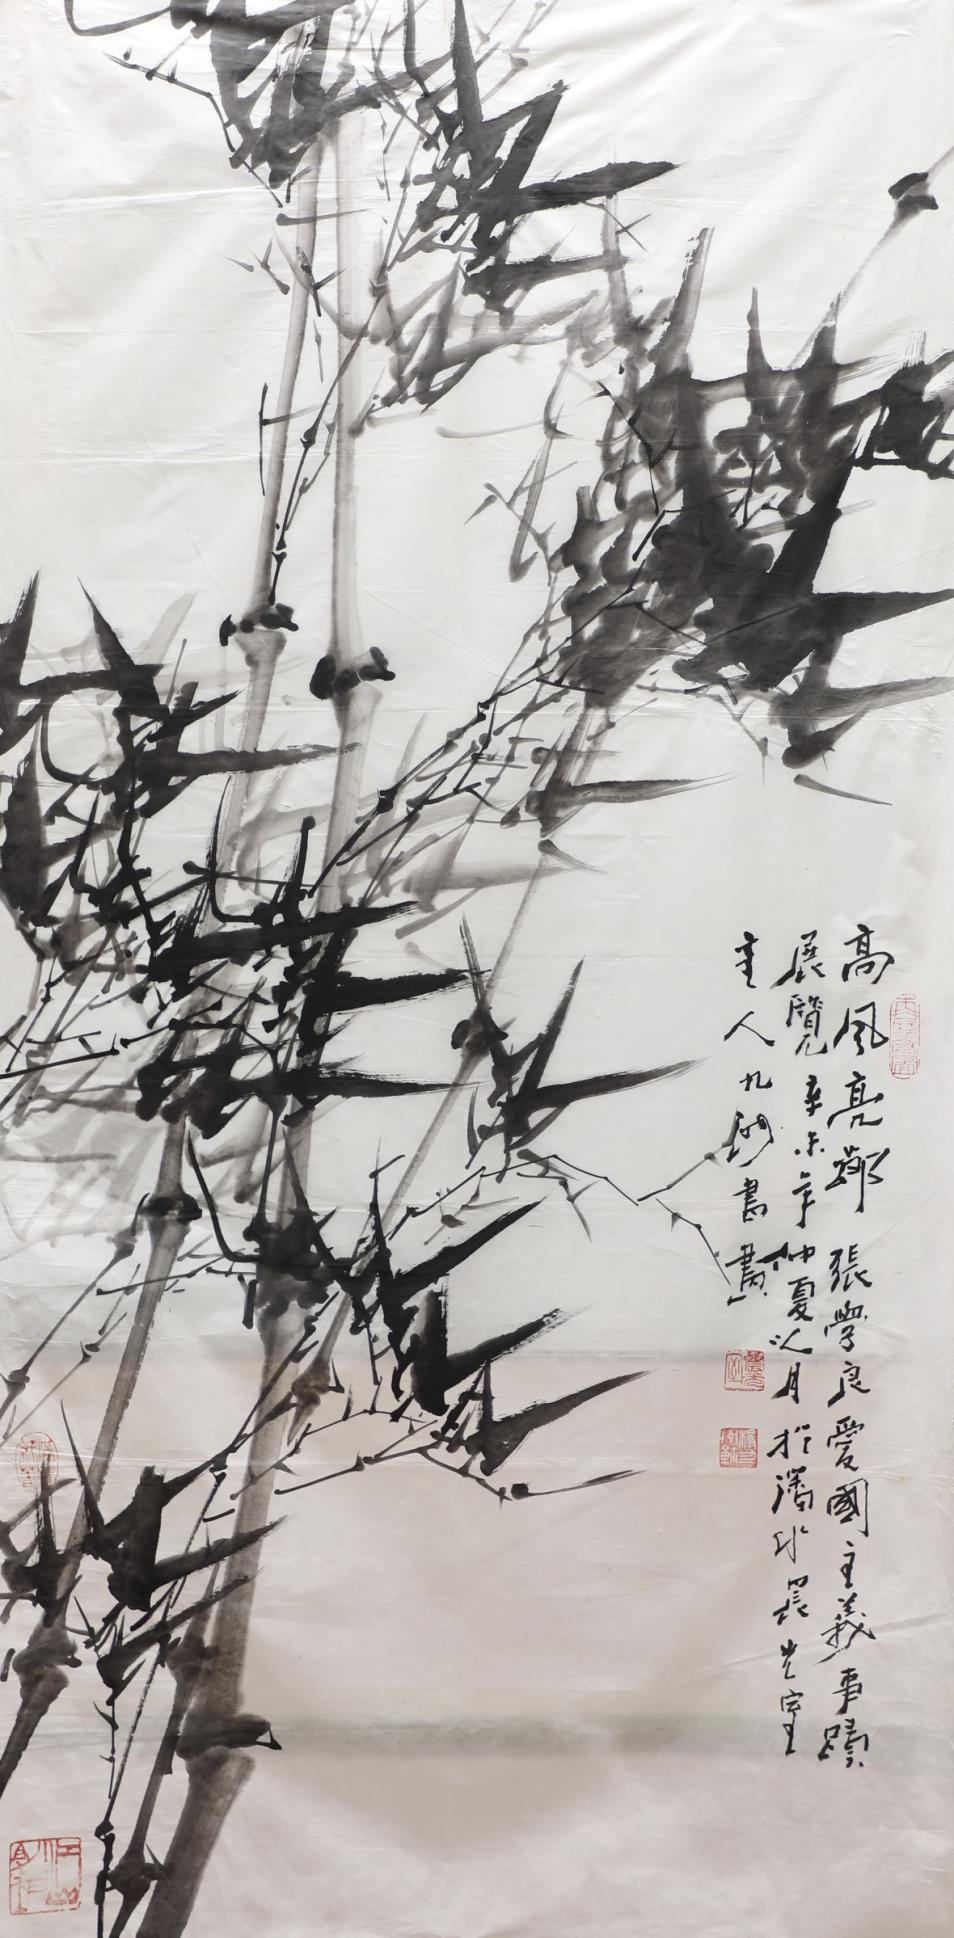 高風亮節 張學良愛國主義事蹟
展覽 辛未年仲夏之月於瀋水晨光室
主人九洲書畫